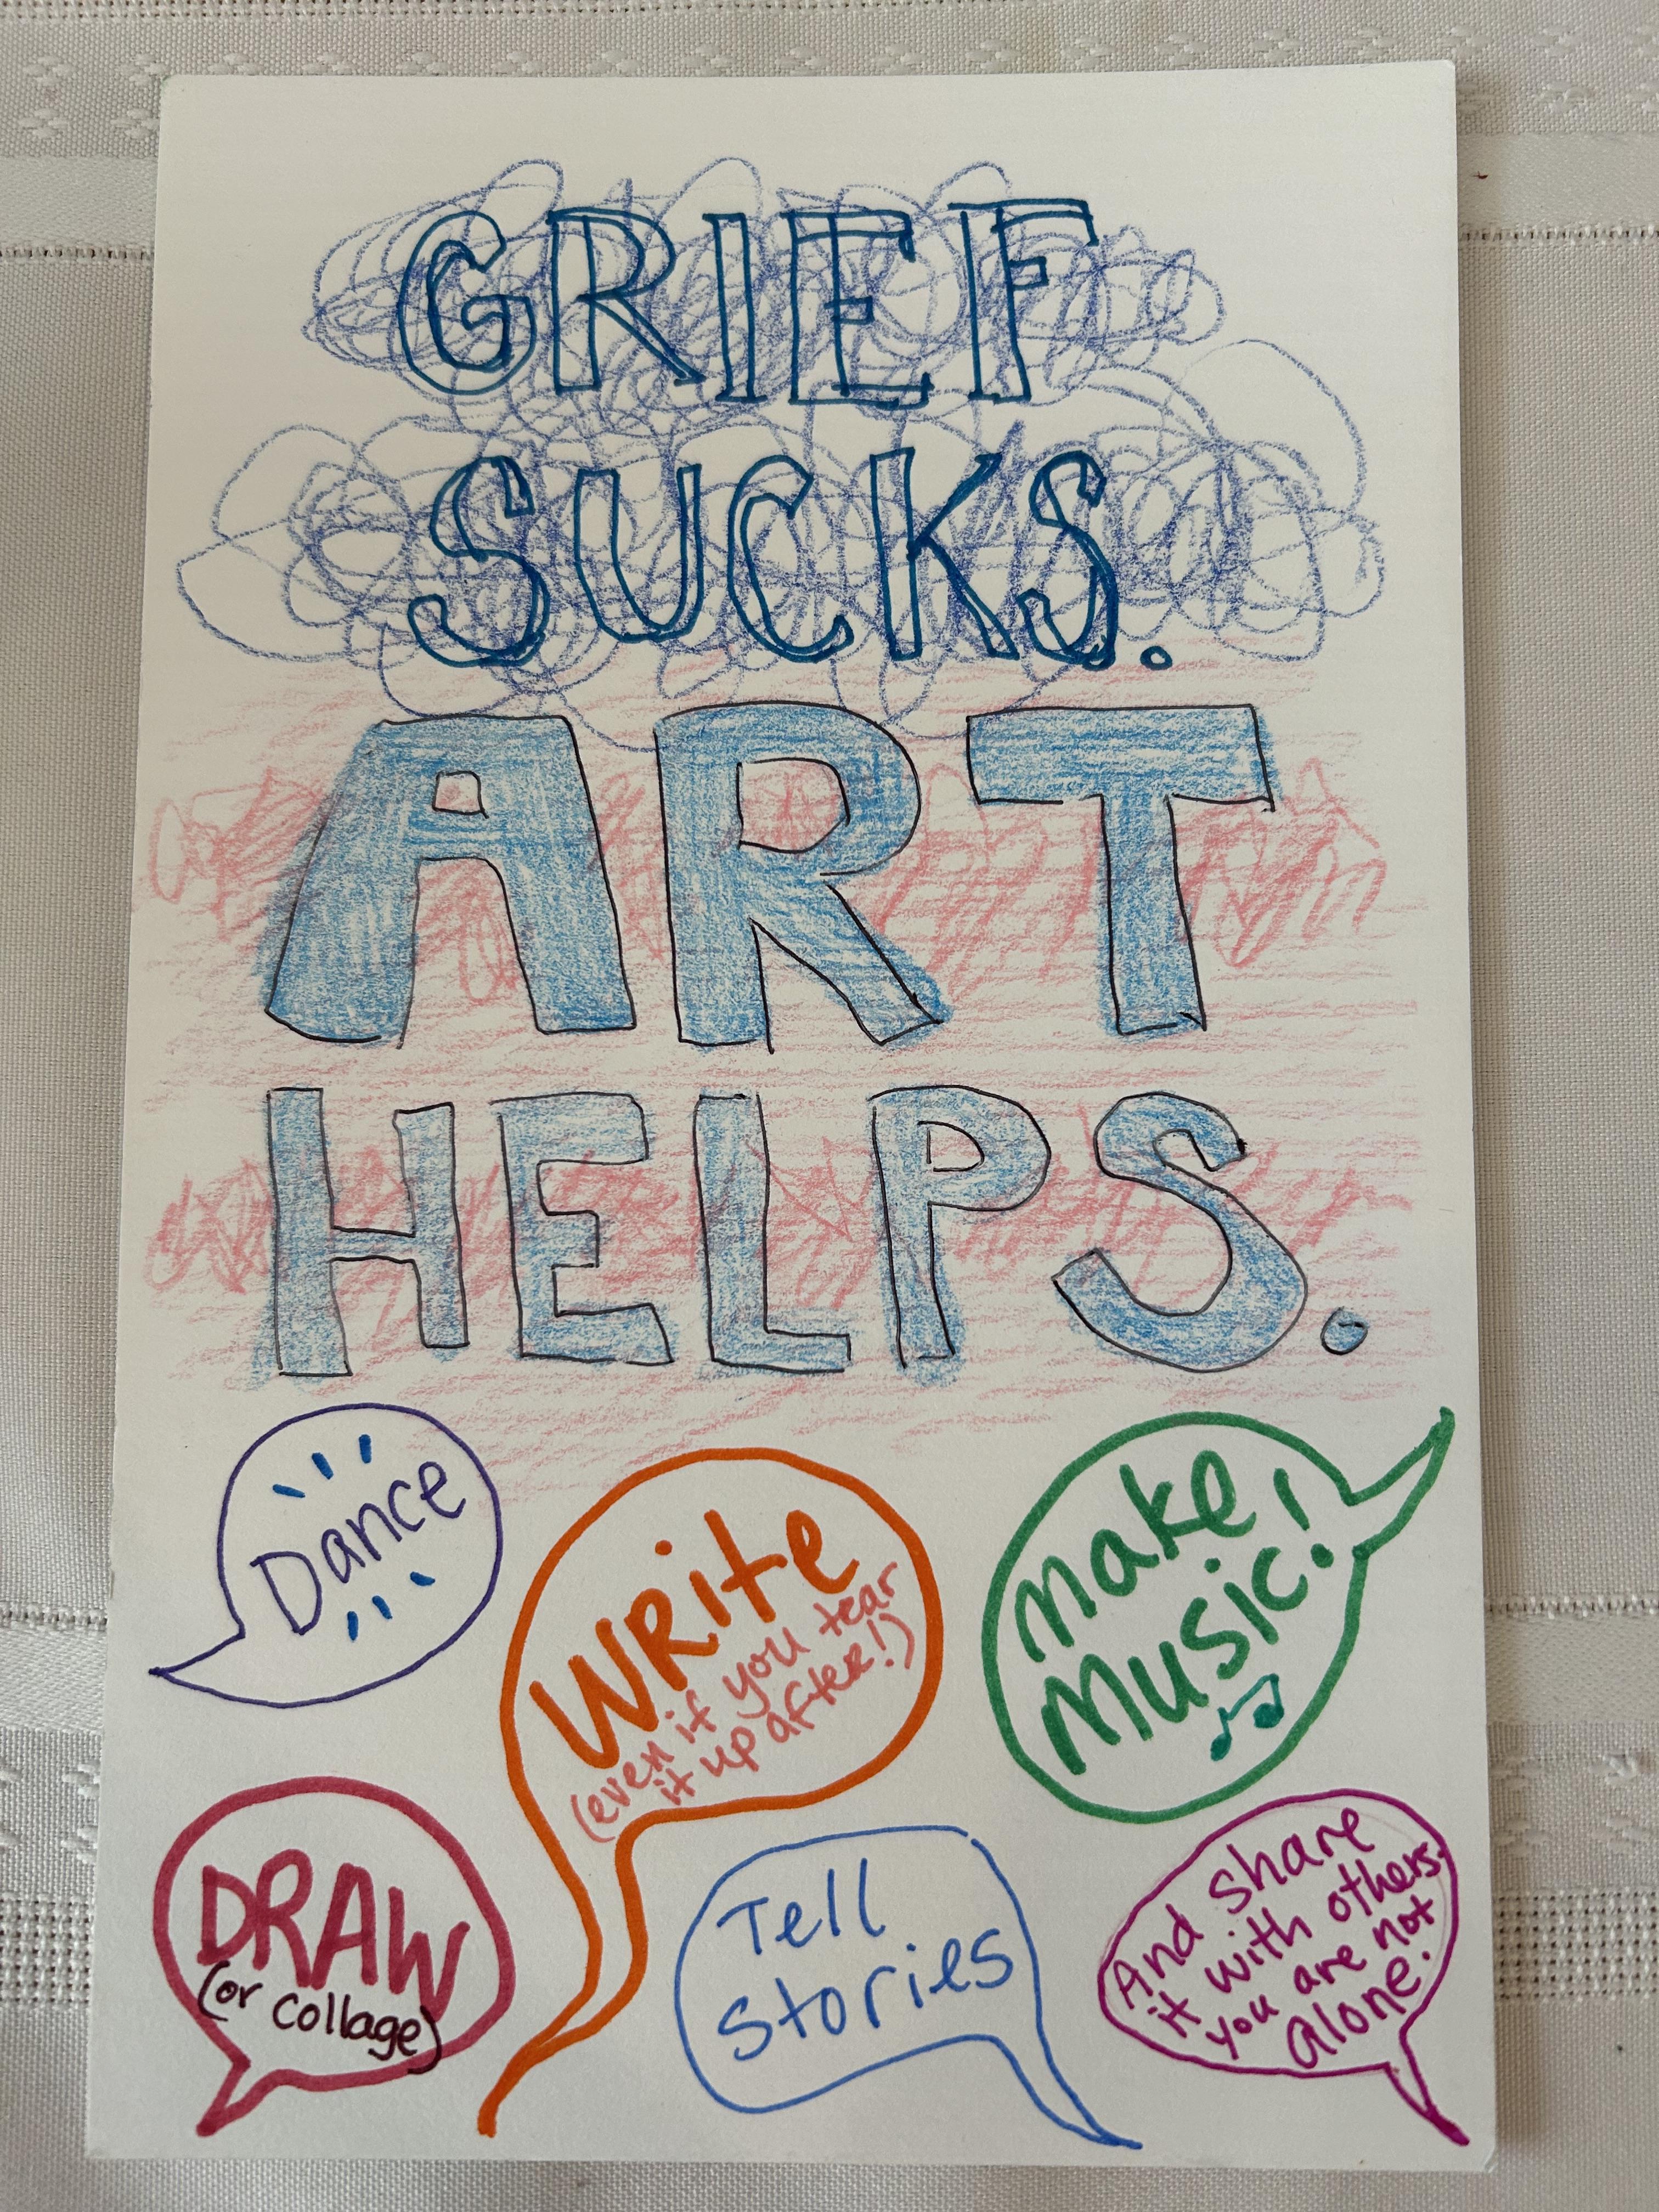 GRIEF
SUCKS.
ART
HELPS.
Dance
WRite
(even if you tear
it up after!)
make
Music!
DRAW
(or collage)
Tell
stories
And share
it with others.
you are not
alone.